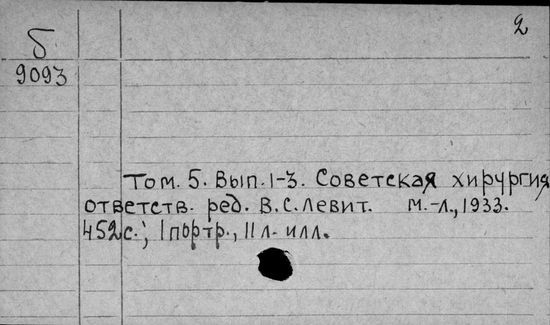 2
б
9093
Том. 5. Вып. 1-3. Советская хирургия,
ответств. ред. В.С. Левит. М.-Л., 1933.
452с.; 1 портр., 11 л. илл.